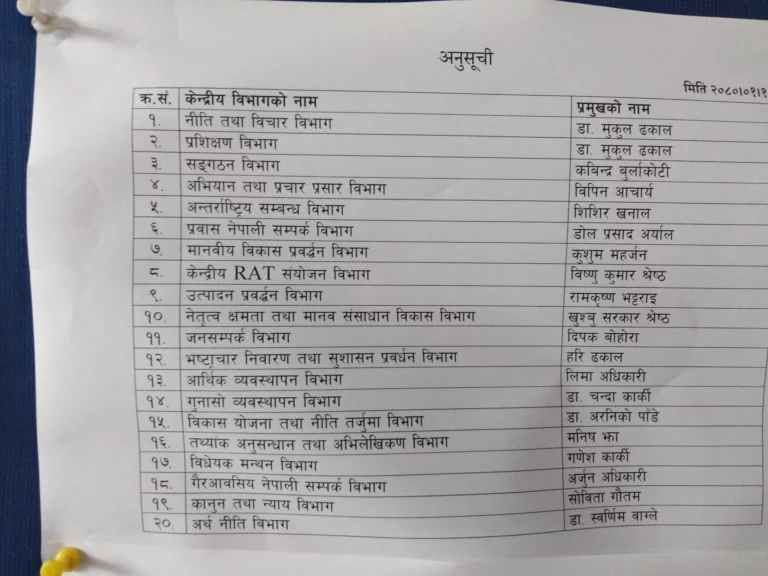 अनुसूची
मिति २०८०।०१।१
क्र.सं. केन्द्रीय विभागको नाम प्रमुखको नाम
१. नीति तथा विचार विभाग डा. मुकुल ढकाल
२. प्रशिक्षण विभाग डा. मुकुल ढकाल
३. सङ्गठन विभाग कबिन्द्र बुर्लाकोटी
४. अभियान तथा प्रचार प्रसार विभाग विपिन आचार्य
५. अन्तर्राष्ट्रिय सम्बन्ध विभाग शिशिर खनाल
६. प्रवास नेपाली सम्पर्क विभाग डोल प्रसाद अर्याल
७. मानवीय विकास प्रवर्द्धन विभाग कुशुम महर्जन
८. केन्द्रीय RAT संयोजन विभाग विष्णु कुमार श्रेष्ठ
९. उत्पादन प्रवर्द्धन विभाग रामकृष्ण भट्टराइ
१०. नेतृत्व क्षमता तथा मानव संसाधान विकास विभाग खुश्बु सरकार श्रेष्ठ
११. जनसम्पर्क विभाग दिपक बोहोरा
१२. भष्टाचार निवारण तथा सुशासन प्रवर्धन विभाग हरि ढकाल
१३. आर्थिक व्यवस्थापन विभाग लिमा अधिकारी
१४. गुनासो व्यवस्थापन विभाग डा. चन्दा कार्की
१५. विकास योजना तथा नीति तर्जुमा विभाग डा. अरनिको पाँडे
१६. तथ्यांक अनुसन्धान तथा अभिलेखिकण विभाग मनिष झा
१७. विधेयक मन्थन विभाग गणेश कार्की
१८. गैरआवसिय नेपाली सम्पर्क विभाग अर्जुन अधिकारी
१९. कानुन तथा न्याय विभाग सोविता गौतम
२०. अर्थ नीति विभाग डा. स्वर्णिम वाग्ले